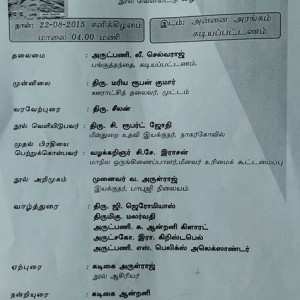 நாள்: 22-08-2015 சனிக்கிழமை
மாலை 04.00 மணி
இடம்: அன்னை அரங்கம்
கடியப்பட்டணம்
தலைமை : அருட்பணி. லீ. செல்வராஜ்
பங்குத்தந்தை, கடியப்பட்டணம்.
முன்னிலை : திரு. மரிய ரூபன் குமார்
ஊராட்சித் தலைவர், முட்டம்
வரவேற்புரை : திரு. சீலன்
நூல் வெளியிடுபவர் : திரு. சி. ரூபர்ட் ஜோதி
மீன்துறை உதவி இயக்குநர், நாகர்கோவில்
முதல் பிரதியை
பெற்றுக்கொள்பவர் : வழக்கறிஞர் சி.சே. இராசன்
மாநில ஒருங்கிணைப்பாளர், மீனவர் உரிமைக் கூட்டமைப்பு
நூல் அறிமுகம் : முனைவர் வ. அருள்ராஜ்
இயக்குநர், பாபுஜி நிலையம்
வாழ்த்துரை : திரு. ஜி. ஜெரோமியாஸ்
திருமிகு. மலர்வதி
அருட்பணி. சு. ஆன்றனி கிளாரட்
அருட்சகோ. இரா. கிறிஸ்டபெல்
அருட்பணி. எஸ். பெலிக்ஸ் அலெக்ஸாண்டர்
ஏற்புரை : கடிகை அருள்ராஜ்
நூல் ஆசிரியர்
நன்றியுரை : கடிகை ஆன்றனி